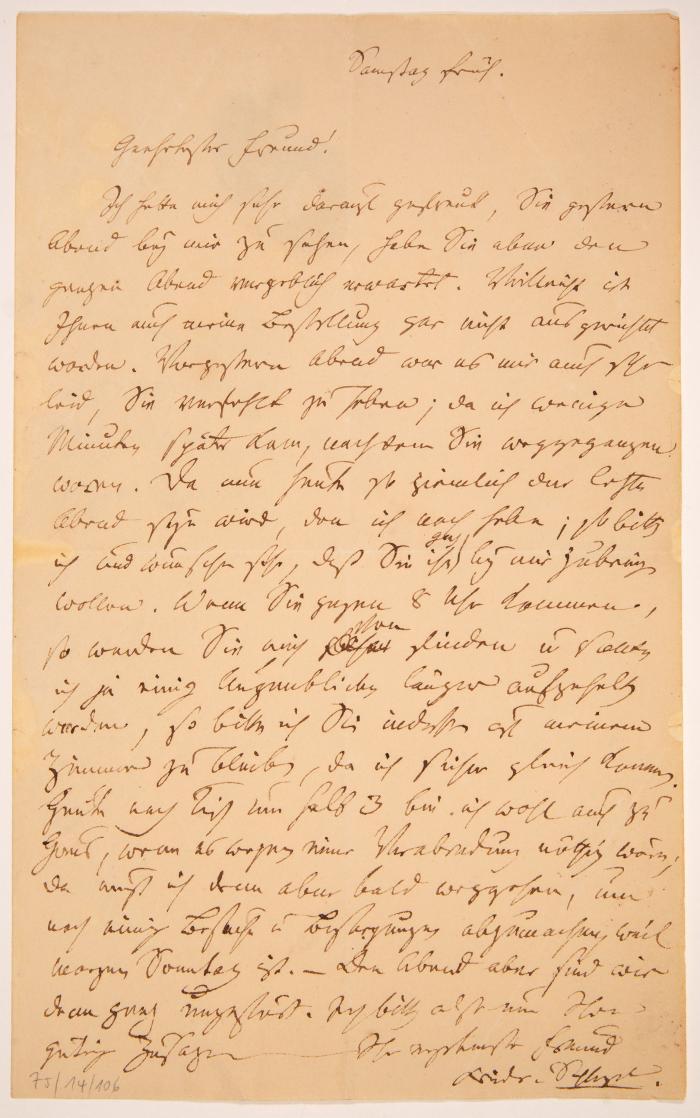 Samstag früh.
Geehrtester Freund!
Ich hatte mich sehr darauf gefreut, Sie gestern
Abend bey mir zu sehen, habe Sie aber den
ganzen Abend vergeblich erwartet. Vielleicht ist
Ihnen auch meine Bestellung gar nicht ausgerichtet
worden. Vorgestern Abend war es mir auch sehr
leid, Sie verfehlt zu haben; da ich wenige
Minuten später kam, nachdem Sie weggegangen
waren. Da nun heute so ziemlich der letzte
Abend seyn wird, den ich noch habe; so bitte
ich und wünsche sehr, daß Sie ihn bey mir zubringen
wollen. Wenn Sie gegen 8 Uhr kommen,
so werden Sie mich schon finden u sollte
ich ja einige Augenblicke länger aufgehalten
werden, so bitte ich Sie indessen auf meinem
Zimmer zu bleiben, da ich sicher gleich komme.
Heute nach Tisch um halb 3 bin ich wohl auch zu
Haus, wenn es wegen einer Verabredung nöthig wäre;
da muß ich dann aber bald weggehen, um
noch einige Besuche u Besorgungen abzumachen, weil
morgen Sonntag ist. – Den Abend aber sind wir
dann ganz ungestört. Ich bitte also um Ihre
gütige Zusage
Ihr ergebenster Freund
Friedr. Schlegel.
75/14/106